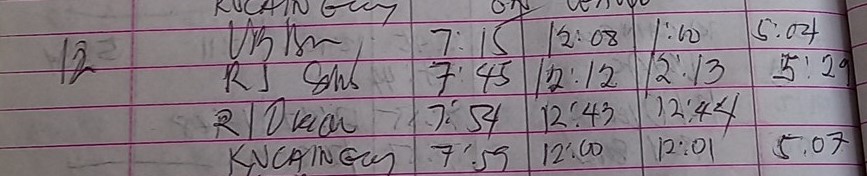 KNCAINGuy ON
12 7:15 12:08 1:00 5:04
RJ 7:45 12:12 12:13 5:29
R 7:54 12:43 12:44
KNCAINGuy 7:59 12:00 12:01 5.07